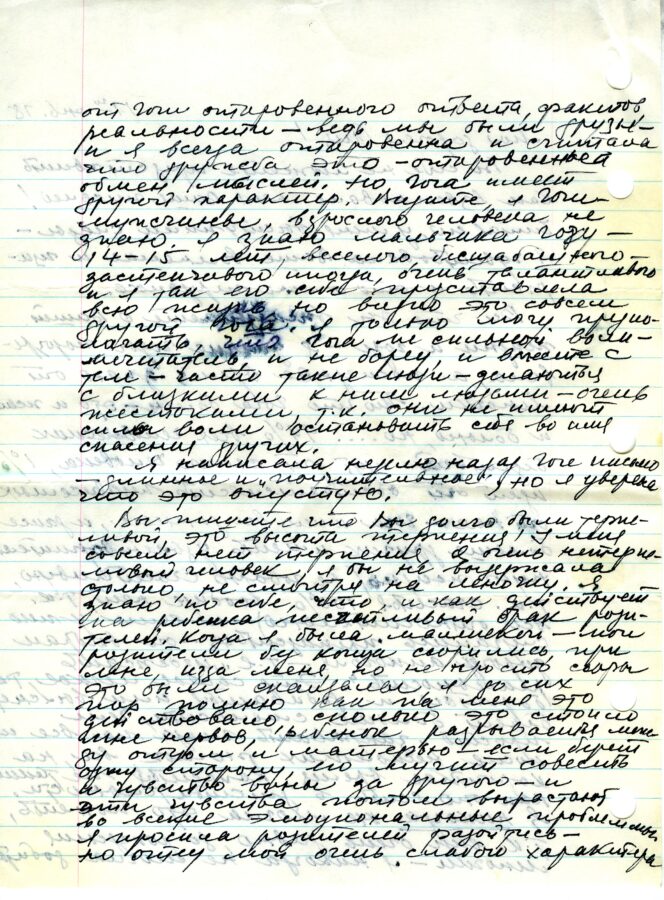 от Гоги откровенного ответа, фактов
реальности — ведь мы были друзья —
и я всегда откровенна и считала
что дружба это — откровенней
обмен мыслей. Но Гога имеет
другой характер. Видите, я Гоги —
мужчины, взрослого человека не
знаю. Я знаю мальчика году —
14–15 лет, веселого, бесшабашного —
застенчивого иногда, очень талантливого
и я так его себе представляла
всю жизнь но видно это совсем
другой Гога. Я только могу предпо-
лагать, что Гога не сильной воли —
мечтатель и не борец и вместе с
тем — часто такие люди — делаются
с близкими к ним людьми — очень
жестокими, т.к. они не имеют
силы воли остановить себя во имя
спасения других.
Я написала неделю назад Гоге письмо
— длинное и „поучительное", но я уверена
что это впустую.
Вы пишите что Вы долго были терпе-
ливой, это высота терпения. У меня
совсем нет терпения, я очень нетерпе-
ливый человек, я бы не выдержала
столько, не смотря на Леночку. Я
знаю по себе, что, и как действует
на ребенка несчастливый брак роди-
телей. Когда я была маленькой — мои
родители без конца ссорились при
мне, изза меня, но не просто ссоры
это были скандалы я до сих
пор помню как на меня это
действовало, сколько это стоило
мне нервов, ребенок разрывается меж-
ду отцом и матерью — если берет
одну сторону, его мучит совесть
и чувство вины за другого — и
эти чувства потом вырастают
во всякие эмоциональные проблеммы.
Я просила родителей разойтись —
но отец мой очень слабого характера